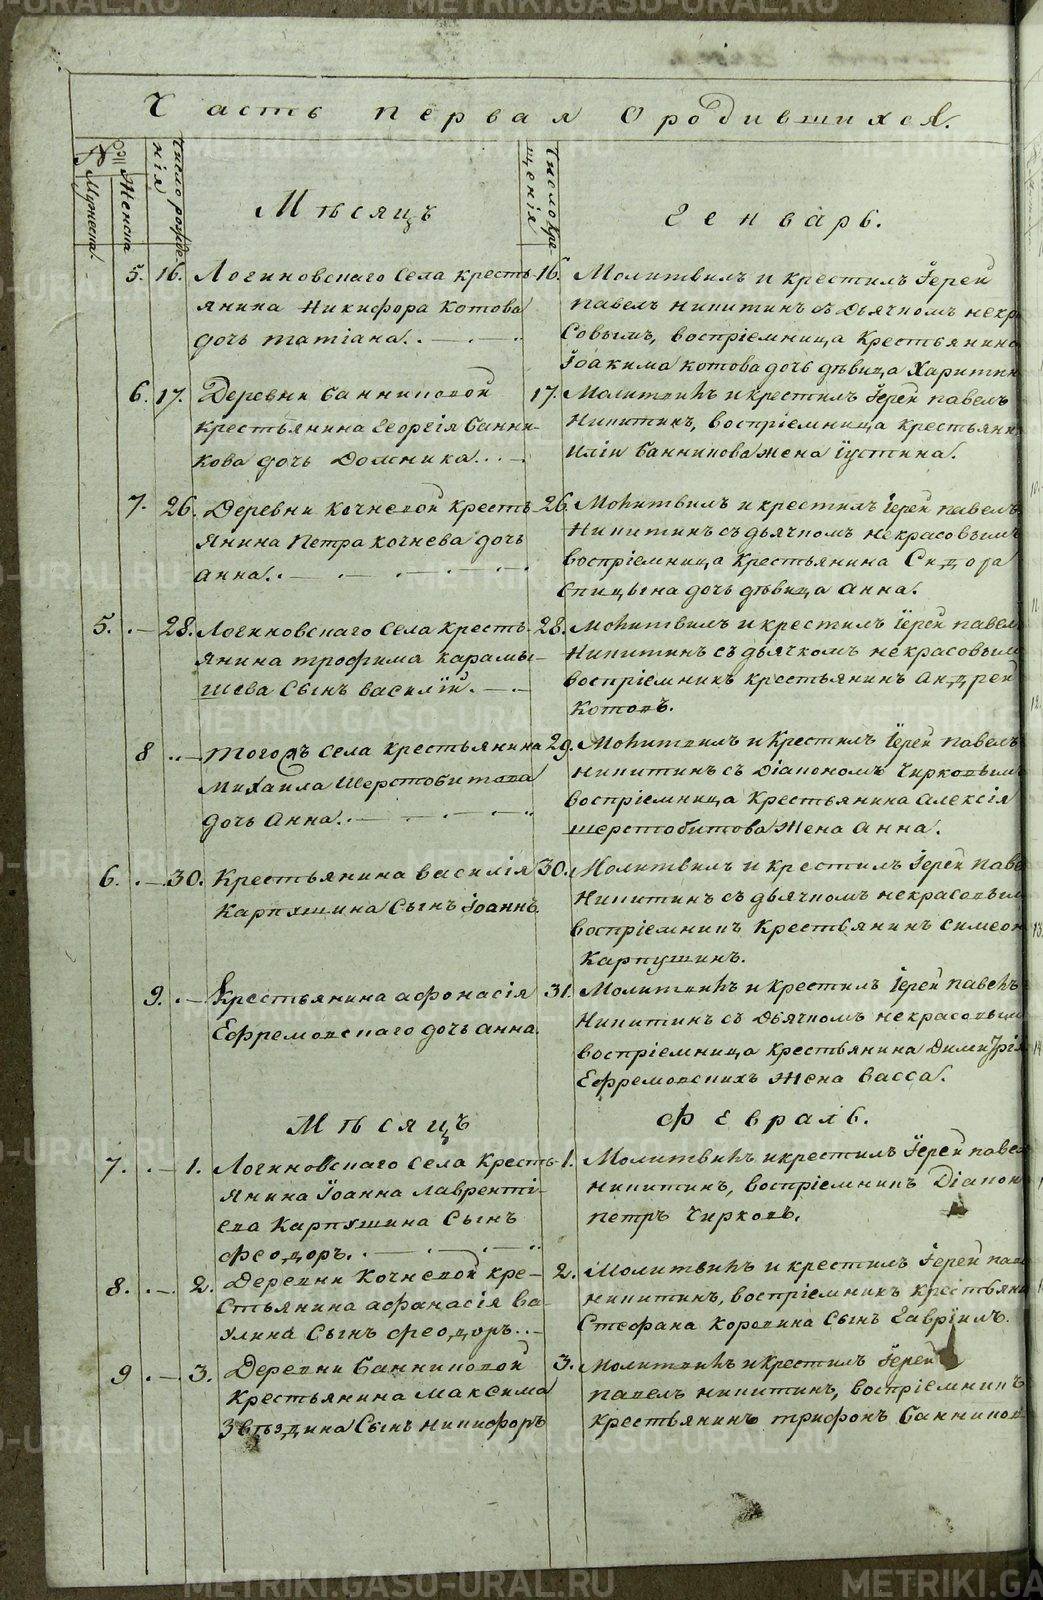 METRIKI.GASO-URAL.RU
Часть первая О родившихся.
№
Мужеска.
Женска
Число рожде-
нія
Мѣсяцъ
Число кре-
щенія
Генварь.
5. 16. Логиновскаго села кресть-
янина Никифора Котова
дочь Татіана.
16. Молитвилъ и крестилъ Іерей
Павелъ Никитинъ съ Дьячкомъ Некра
совымъ, воспріемница Крестьянина
Іоакима Котова дочь дѣвица Харитин
6. 17. Деревни Банниковой
крестьянина Георгія Банни-
кова дочь Домника.
17. Молитвилъ и крестилъ Іерей Павелъ
Никитинъ, воспріемница крестьянин
Иліи Банникова жена Іустина.
7. 26. Деревни Кочневой кресть-
янина Петра Кочнева дочь
Анна.
26. Молитвилъ и крестилъ Іерей Павелъ
Никитинъ съ дьячкомъ Некрасовымъ
воспріемница крестьянина Сидора
Спицына дочь дѣвица Анна.
5. 28. Логиновскаго села кресть-
янина Трофима Карамы-
шева сынъ Василій.
28. Молитвилъ и крестилъ Іерей Павел
Никитинъ съ дьячкомъ Некрасовым
воспріемникъ крестьянинъ Андрей
Котовъ.
8 Тогожъ села крестьянина
Михаила Шерстобитова
дочь Анна.
29. Молитвилъ и крестилъ Іерей Павелъ
Никитинъ съ Діакономъ Чирковымъ
воспріемница Крестьянина Алексія
Шерстобитова жена Анна.
6. 30. Крестьянина Василія
Карпушина сынъ Іоаннъ.
30. Молитвилъ и крестилъ Іерей Паве
Никитинъ съ дьячкомъ Некрасовым
воспріемникъ крестьянинъ Симеон
Карпушинъ.
9. Крестьянина Афонасія
Ефремовскаго дочь Анна.
31. Молитвилъ и крестилъ Іерей Павелъ
Никитинъ съ Дьячкомъ Некрасовым
воспріемница крестьянина Димитрія
Ефремовскихъ жена Васса.
Мѣсяцъ
Февраль.
7. 1. Логиновскаго села Кресть-
янина Іоанна Лавренті-
ева Карпушина сынъ
Феодоръ.
1. Молитвилъ и крестилъ Іерей Павел
Никитинъ, воспріемникъ Діакон
Петръ Чирковъ.
8. 2. Деревни Кочневой кре-
стьянина Афанасія Ва-
улина сынъ Феодоръ.
2. Молитвилъ и крестилъ Іерей Паве
Никитинъ, воспріемникъ крестьяни
Стефана Коровина сынъ Гавріилъ.
9 3. Деревни Банниковой
крестьянина Максима
Звѣздина сынъ Никифоръ
3. Молитвилъ и крестилъ Іерей
Павелъ Никитинъ, воспріемникъ
крестьянинъ Трифонъ Банников
METRIKI.GASO-URAL.RU